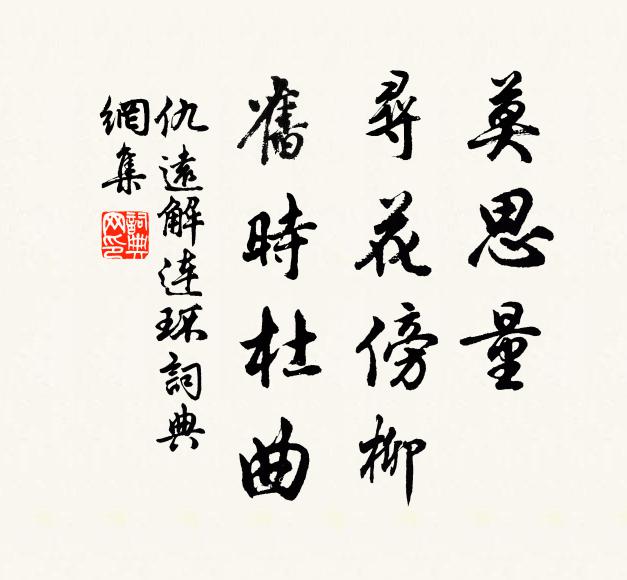 莫思量
尋花傍柳
舊時杜曲
仇遠解連環詞典
網集
詞典
网印